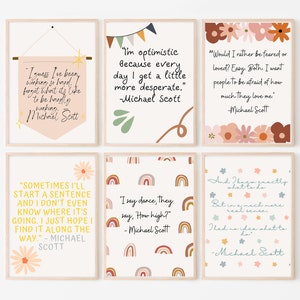 "I guess I've been
working so hard, I
forgot what it's like
to be hardly
working."
-Michael Scott
"I'm optimistic
because every
day I get a little
more desperate."
-Michael Scott
"Would I rather be feared or
loved? Easy. Both. I want
people to be afraid of how
much they love me"
-Michael Scott
"SOMETIMES I'LL
START A SENTENCE
AND I DON'T EVEN
KNOW WHERE IT'S
GOING. I JUST HOPE I
FIND IT ALONG THE
WAY." - MICHAEL
SCOTT
"I say dance, they
say, 'How high?'"
-Michael Scott
And I knew exactly
what to do.
But in a much more
real sense,
I had no idea what to
do."
-Michael Scott